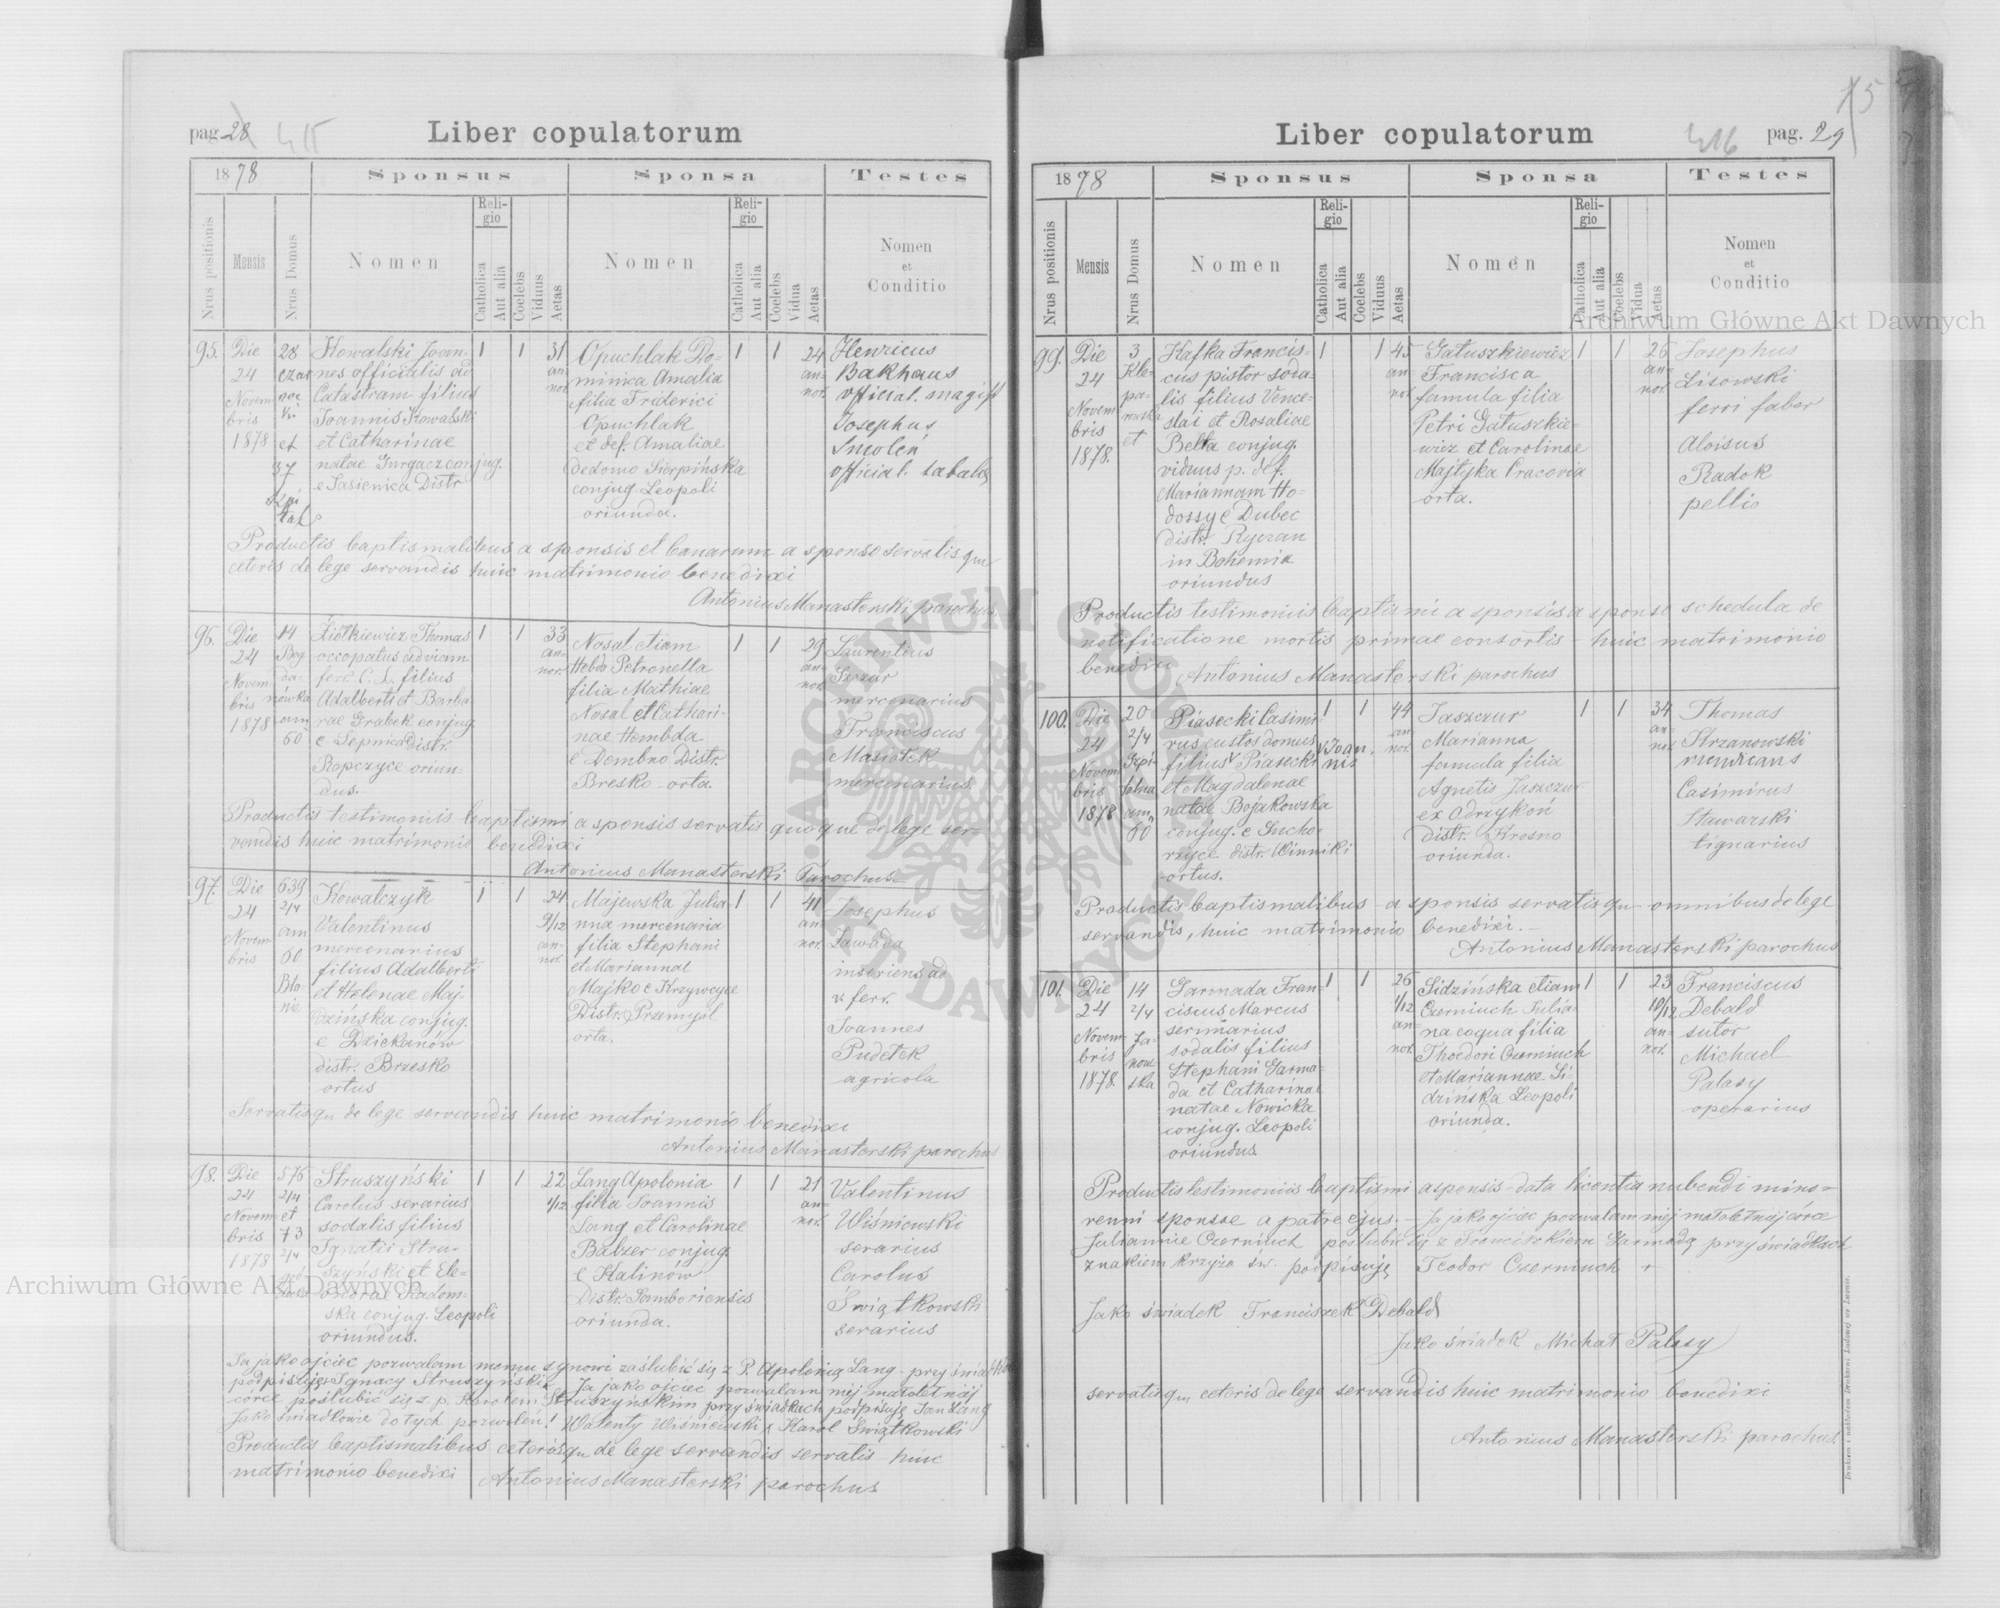 pag. 28
415
Liber copulatorum
1878
Sponsus
Sponsa
Testes
Nrus positionis
Mensis
Nrus Domus
Nomen
Religio
Catholica
Aut alia
Coelebs
Viduus
Aetas
Nomen
Religio
Catholica
Aut alia
Coelebs
Vidua
Aetas
Nomen
et
Conditio
95.
Die
24
Novem
bris
1878
28
et
37
Kowalski Joan-
nes officialis ad
Catastram filius
Joannis Kowalski
et Catharinae
natae Gurgacz conjug.
e Jasienica Distr
1
1
31
an-
nor.
Opuchlak Do-
minica Amalia
filia Friderici
Opuchlak
et def. Amaliae
de domo Sierpińska
conjug. Leopoli
oriunda.
1
1
24
an-
nor.
Henricus
Bakhaus
official. magist
Josephus
Smoleń
official. tabulae
Productis baptismalibus a sponsis et banarum a sponso servatisque
ceteris de lege servandis huic matrimonio benedixi
Antonius Manasterski parochus
96.
Die
24
Novem
bris
1878
14
Bog
da-
nówka
am
60
Ziółkiewicz Thomas
occopatus ad viam
ferr. C. L. filius
Adalberti et Barba-
rae Grabek conjug
e Sepnica Distr.
Ropczyce oriun-
dus.
1
1
33
an-
nor.
Nosal etiam
Hebda Petronella
filia Mathiae
Nosal et Cathari-
nae Hembda
e Dembno Distr.
Bresko orta.
1
1
29
an-
nor.
Laurentius
mercenarius
Franciscus
Masiotek
mercenarius
Productis testimoniis baptismi a sponsis servatis quoque de lege ser-
vandis huic matrimonio benedixi
Antonius Manasterski Parochus
97.
Die
24
Novem
bris
639
2/4
am
60
Bło-
nie
Kowalczyk
Valentinus
mercenarius
filius Adalberti
et Helenae Maj-
dzińska conjug.
e Dziekanów
distr. Brzesko
ortus
1
1
24
9/12
an-
nor.
Majewska Julia-
nna mercenaria
filia Stephani
et Mariannae
Majko e Krzywcyce
Distr. Przemysl
orta.
1
1
41
an-
nor.
Josephus
Sawada
inseriens ad
v. ferr.
Joannes
Pudełek
agricola
Servatisque de lege servandis huic matrimonio benedixi
Antonius Manasterski parochus
98.
Die
24
Novem
bris
1878
576
2/4
et
73
2/4
Struszyński
Carolus serarius
sodalis filius
Ignatii Stru-
szyński et Ele-
onorae Radom-
ska conjug. Leopoli
oriundus.
1
1
22
1/12
Lang Apolonia
filia Joannis
Lang et Carolinae
Balzer conjug
e Kalinów
Distr. Samboriensis
oriunda.
1
1
21
an-
nor.
Valentinus
Wiśniewski
serarius
Carolus
Świątkowski
serarius
Ja jako ojciec pozwalam memu synowi zaślubić się z P. Apolonią Lang - przy świadkach
podpisuję Ignacy Struszyński. Ja jako ojciec pozwalam mej małoletniej
córce poślubić się z p. Karolem Struszyńskim przy świadkach podpisuję Jan Lang
Jako świadkowie do tych pozwoleń! Walenty Wiśniewski, Karol Świątkowski
Productis baptismalibus ceterisque de lege servandis servatis huic
matrimonio benedixi Antonius Manasterski parochus
Liber copulatorum
416
pag. 29
1878
Sponsus
Sponsa
Testes
Nrus positionis
Mensis
Nrus Domus
Nomen
Religio
Catholica
Aut alia
Coelebs
Viduus
Aetas
Nomen
Religio
Catholica
Aut alia
Coelebs
Vidua
Aetas
Nomen
et
Conditio
99.
Die
24
Novem
bris
1878.
3
Kle-
pa-
rowska
et
Kafka Francis-
cus pistor soda-
lis filius Vence-
slai et Rosaliae
Belta conjug.
viduus p. def.
Mariannam Ho-
dossy e Dubec
distr. Ryczan
in Bohemia
oriundus
1
1
45
an
nor.
Gatuszkiewicz
Francisca
famula filia
Petri Gatuszkie-
wicz et Carolinae
Majtyka Cracovia
orta.
1
1
26
an-
nor.
Josephus
Lisowski
ferri faber
Aloisus
Radok
pellio
Productis testimoniis baptismi a sponsis a sponso schedula de
notificatione mortis primae consortis - huic matrimonio
benedixi Antonius Manasterski parochus
100.
Die
24
Novem
bris
1878
20
2/4
Szpi-
talna
am
60
Piasecki Casimi-
rus custos domus
filius Joannis Piasecki
et Magdalenae
natae Bojakowska
conjug. e Sucho-
rzyce distr. Winniki
ortus.
1
1
44
an
nor.
Jaszczur
Marianna
famula filia
Agnetis Jaszczur
ex Odrzykoń
distr. Krosno
oriunda.
1
1
34
an-
nor.
Thomas
Strzanowski
mendicans
Casimirus
Stawarski
lignarius
Productis baptismalibus a sponsis servatisque omnibus de lege
servandis, huic matrimonio benedixi.-
Antonius Manasterski parochus
101.
Die
24
Novem
bris
1878.
14
2/4
Ja-
now
ska
Garmada Fran-
ciscus Marcus
seriniarius
sodalis filius
Stephani Garma-
da et Catharinae
natae Nowicka
conjug. Leopoli
oriundus
1
1
26
1/12
an-
nor.
Sidzińska etiam
Czerniuch Julia-
na coqua filia
Theodori Czerniuch
et Mariannae Si-
dzińska Leopoli
oriunda.
1
1
23
10/12
an-
nor.
Franciscus
Debald
sutor
Michael
Palasy
operarius
Productis testimoniis baptismi a sponsis - data licentia nubendi mino-
renni sponsae a patre ejus. - Ja jako ojciec pozwalam mej małoletniej córce
Juliannie Czerniuch poślubić się z Franciszkiem Garmadą przy świadkach
znakiem krzyża św. podpisuję Teodor Czerniuch +
Jako świadek Franciszek Debald
Jako świadek Michał Palasy
servatisque ceteris de lege servandis huic matrimonio benedixi
Antonius Manasterski parochus
Drukiem i nakładem Drukarni Ludowej we Lwowie.
Archiwum Główne Akt Dawnych
Archiwum Główne Akt Dawnych